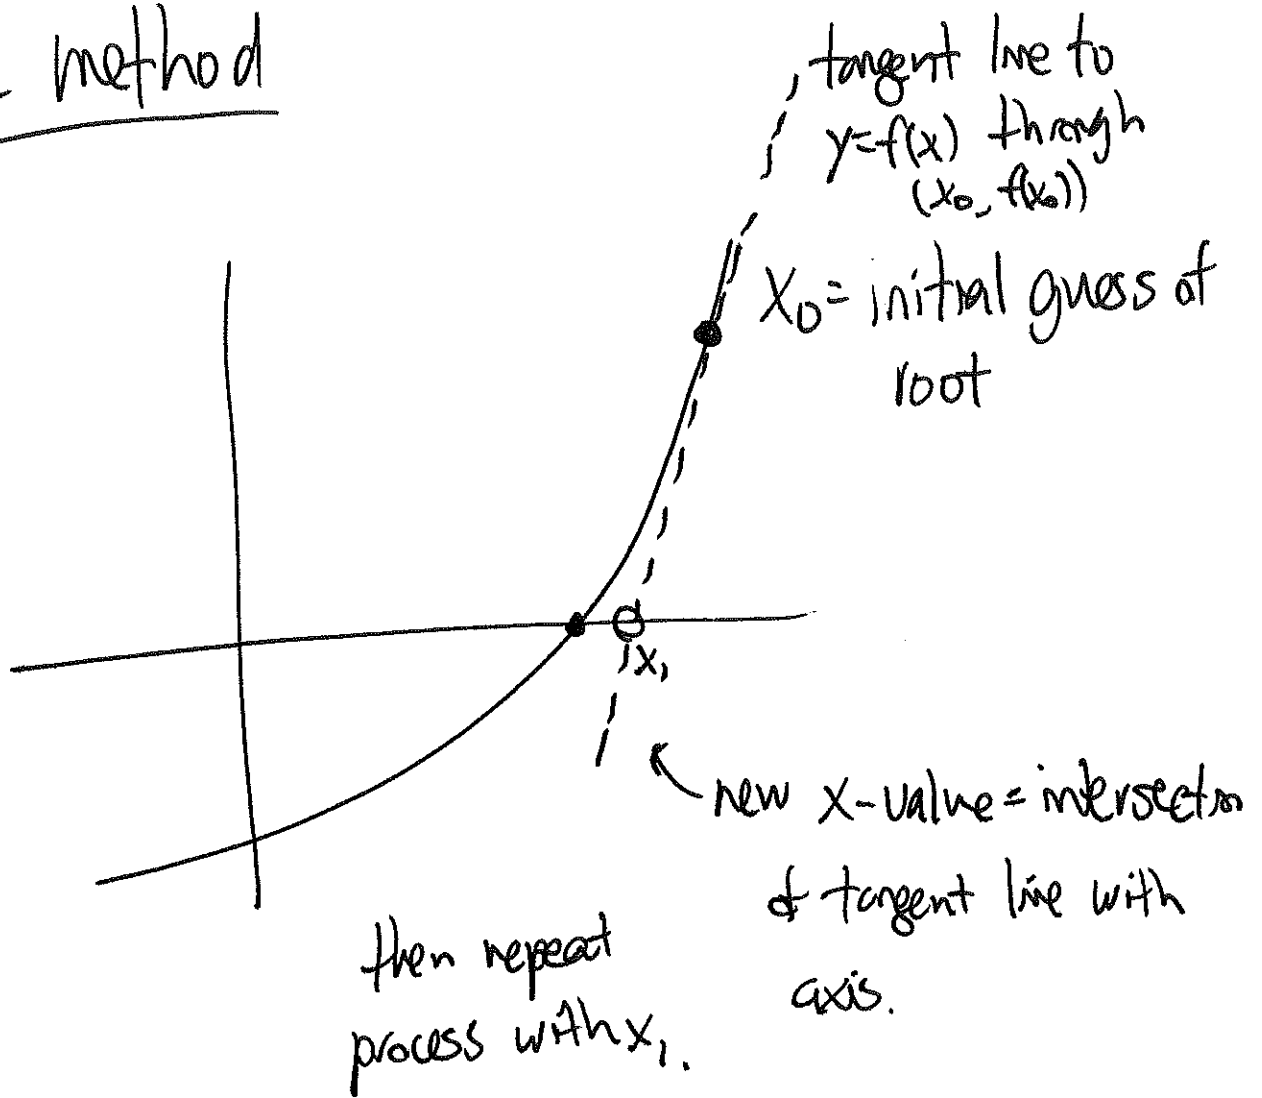 method
tangent line to
y=f(x) through
(x₀, f(x₀))
x₀= initial guess of
root
x₁
new x-value = intersectn
of tangent line with
axis.
then repeat
process with x₁.